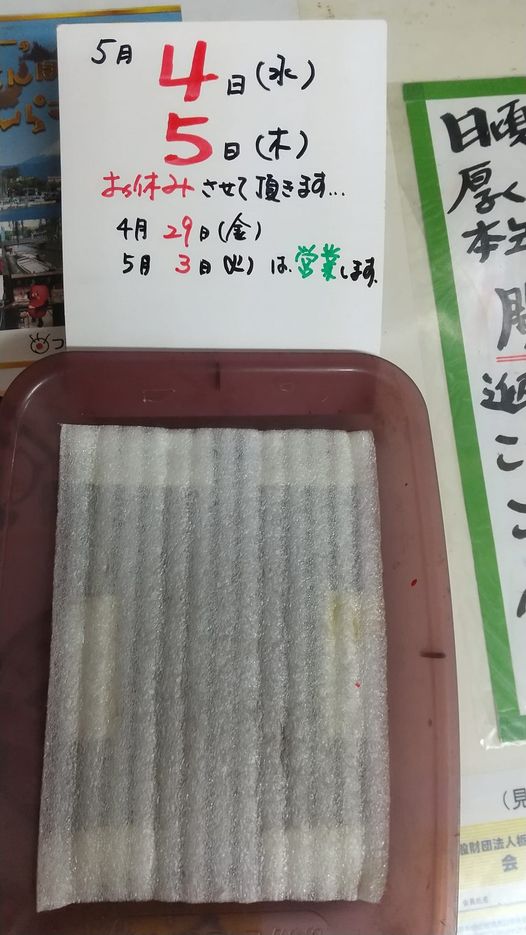 5月 4日(水)
5日(木)
お休みさせて頂きます...
4月 29日(金)
5月 3日(火)は、営業します。
日頃
厚く
本年
こ
(見
般財団法人栃
会
会員氏名